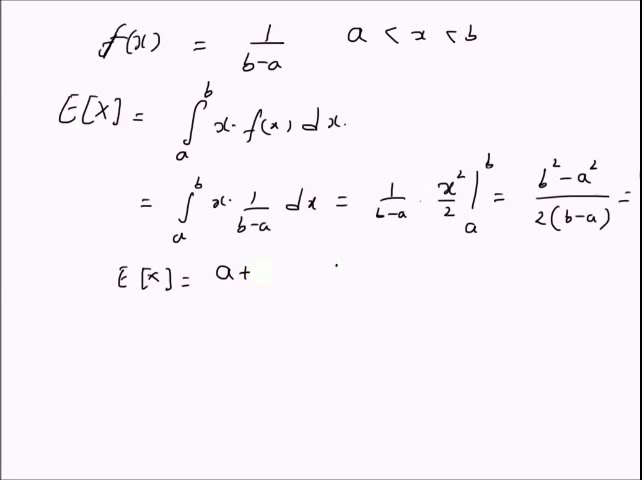 f(x) = 1/(b-a) a < x < b
E[X] = ∫_a^b x· f(x) dx.
= ∫_a^b x· 1/(b-a) dx = 1/(b-a) · x²/2 |_a^b = (b²-a²)/(2(b-a)) =
E[x] = a+